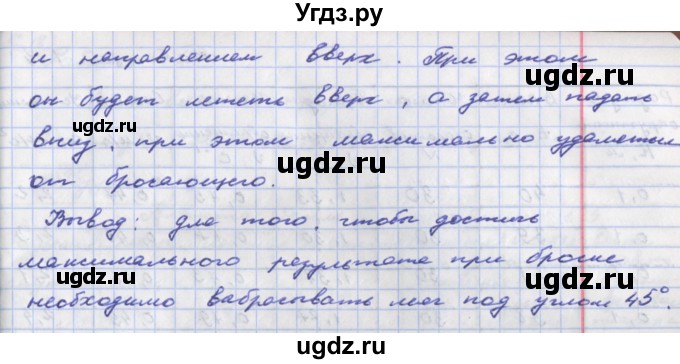 Угдз.ру
и направлением вверх. При этом
он будет лететь вверх, а затем падать
вниз, при этом максимально удаляться
от бросающего.
Вывод: для того, чтобы достичь
максимального результата при броске
необходимо выбрасывать мяч под углом 45°.
ugdz.ru
ugdz.ru
ugdz.ru
ugdz.ru
ugdz.ru
ugdz.ru
ugdz.ru
ugdz.ru
ugdz.ru
ugdz.ru
ugdz.ru